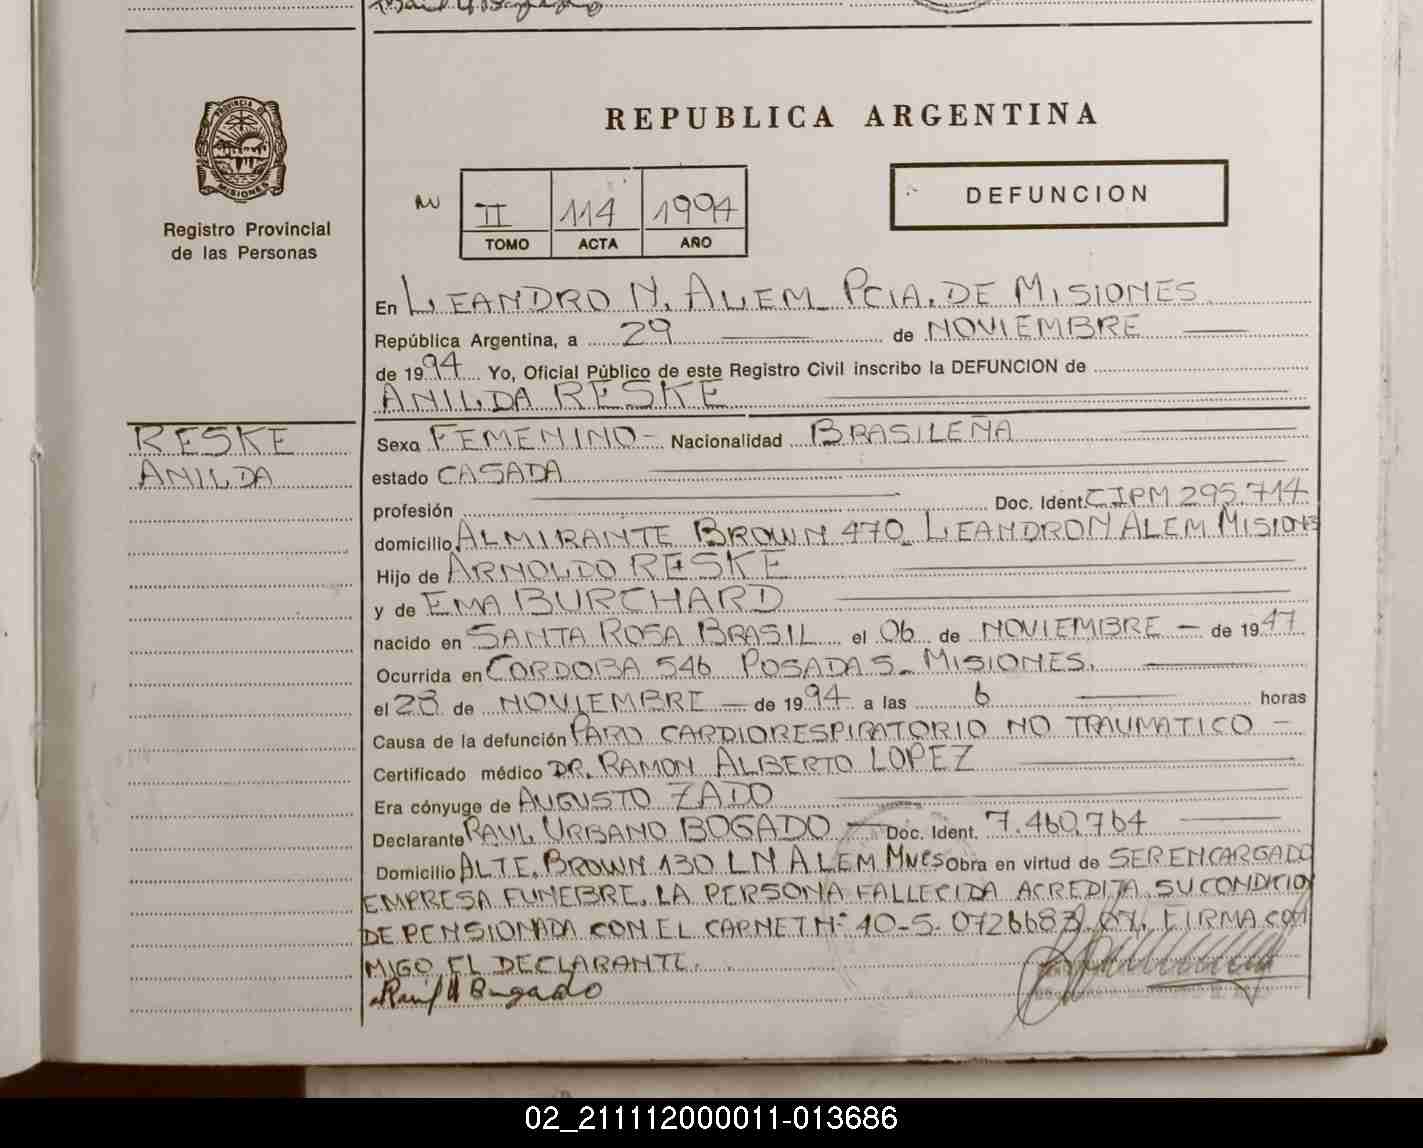 PROVINCIA DE
MISIONES
Registro Provincial
de las Personas
REPUBLICA ARGENTINA
DEFUNCION
II 114 1994
TOMO ACTA AÑO
En LEANDRO N. ALEM PCIA. DE MISIONES
República Argentina, a 29 de NOVIEMBRE
de 1994 Yo, Oficial Público de este Registro Civil inscribo la DEFUNCION de
ANILDA RESKE
RESKE
ANILDA
Sexo FEMENINO - Nacionalidad BRASILEÑA
estado CASADA
profesión Doc. Ident. CIPM 295.714
domicilio ALMIRANTE BROWN 470 LEANDRO N ALEM MISIONES
Hijo de ARNOLDO RESKE
y de EMA BURCHARD
nacido en SANTA ROSA BRASIL el 06 de NOVIEMBRE - de 1947
Ocurrida en CORDOBA 546 POSADAS - MISIONES.
el 28 de NOVIEMBRE - de 1994 a las 6 horas
Causa de la defunción PARO CARDIORESPIRATORIO NO TRAUMATICO -
Certificado médico DR. RAMON ALBERTO LOPEZ
Era cónyuge de AUGUSTO ZADO
Declarante RAUL URBANO BOGADO - Doc. Ident. 7.460.764
Domicilio ALTE. BROWN 130 LN ALEM Mnes Obra en virtud de SER ENCARGADO
EMPRESA FUNEBRE. LA PERSONA FALLECIDA ACREDITA SU CONDICION
DE PENSIONADA CON EL CARNET Nº 40-5-0726683 FIRMA CON
MIGO EL DECLARANTE.
Raul U Bogado
02_211112000011-013686